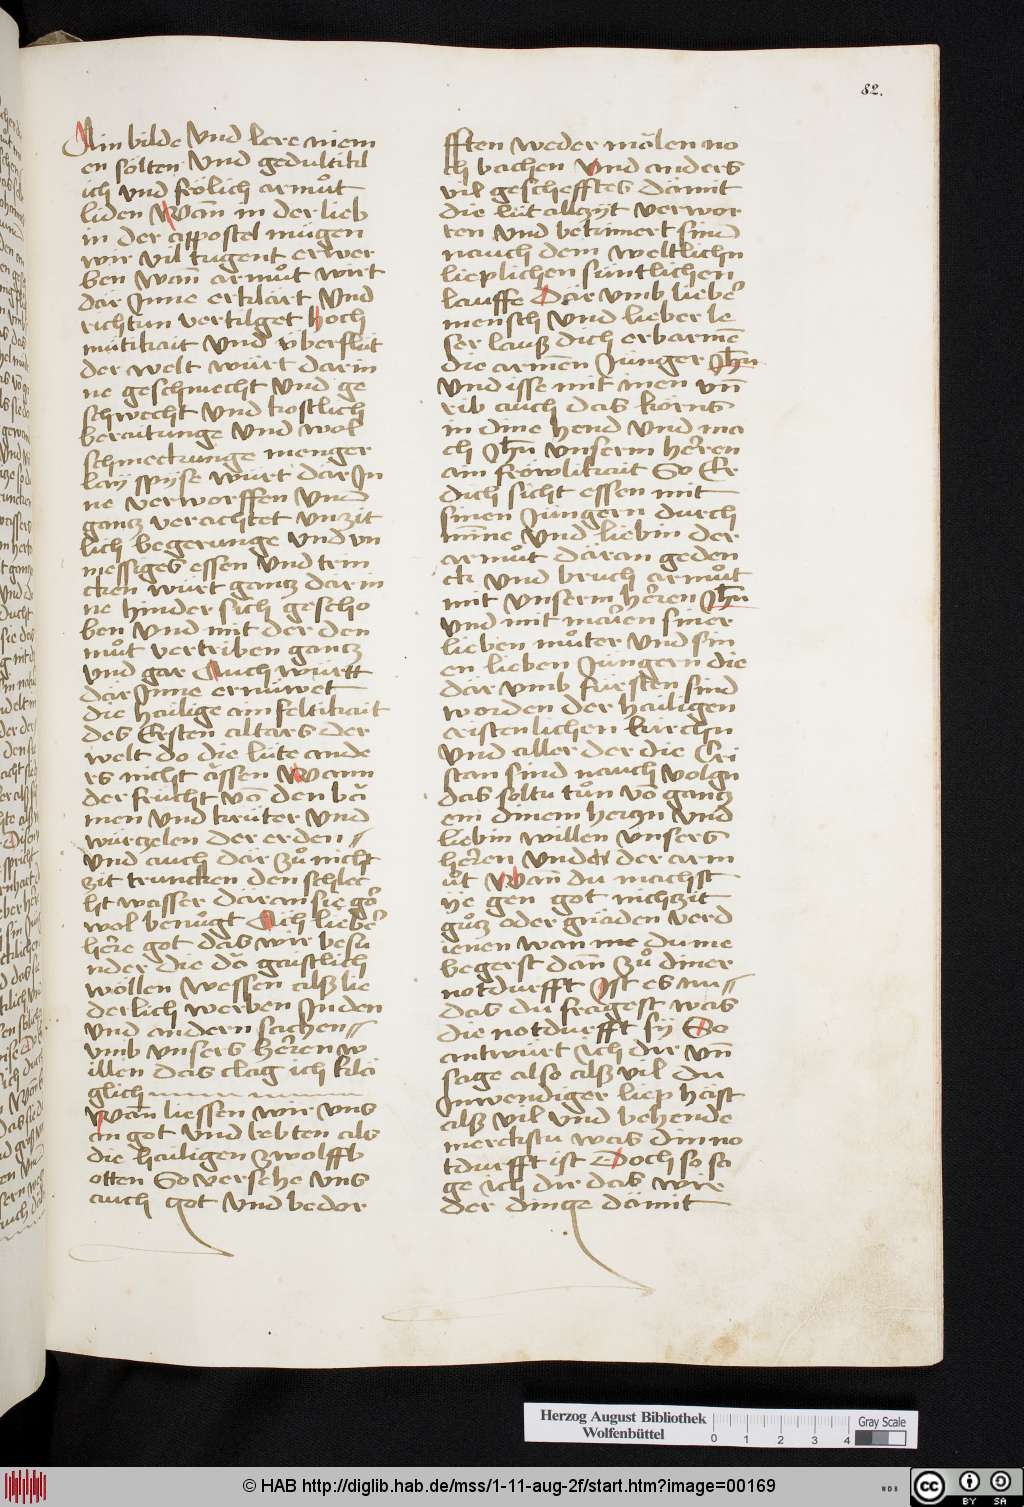 82.
Ain bilde vnd lere niem
en sölten vnd gedultikl
ich vnd frölich armůt
liden Wañ in der lieb
in der appostel mügen
wir vil tugent erwer
ben wañ armůt wirt
där Jnne erklärt vnd
richtun vertilget hoch
mütikait vnd v̈berflüt
der welt würt darin
ne geschmecht vnd ge
schwecht vnd kostlich
beraitunge vnd wol
schmeckunge menger
lay spyse würt dar Jn
ne verworffen vnd
gantz verachtet vnzit
lich begerunge vnd vn
messiges essen vnd trin
cken würt gantz darin
ne hinder sich gescho
ben vnd mit der den
můt vertriben gantz
vnd gar Auch württ
där Jnne ernüwet
die hailige ainfeltikait
des Ersten alters der
welt do die lüte ande
rs nicht ässen Wann
der frücht vō den bȧ
men vnd krüter vnd
würtzelen der erden
vnd auch där zů nicht
zit truncken den schlec
ht wasser däran sie gȯ
wol benůgt Ach lieber̄
here got das wir besu
nder die dȧ gaistlich
wöllen wessen alß lie
derlich werben Jn den
vnd andern sachen
vmb vnsers herren w
illen das clag ich klä
glich
Wañ liessen wir vns
an got vnd lebten als
die hailigen zwolffb
otten So versehe vns
auch got vnd bedor
fften weder mälen no
ch bachen vnd anders
vil gescheftes dämit
die lüt allzÿt verwor
ren vnd bekümert sind
nauch dem weltlichn
lieplichen süntlichen
lauffe Där vmb lieber̄
mensch vnd lieber le
ser lauß dich erbarmē
die armen Jünger Jhū
vnd isse mit inen vn̄
rib auch das körns
in dine hend vnd ma
ch Jhū vnserm herren
ain fröwlikait So Er
dich sicht essen mit
sinen Jüngern durch
minne vnd liebin der
armůt däran geden
ck vnd bruch armůt
mit vnserm herren Jhū
vnd mit märien siner
lieben můter vnd sin
en lieben Jüngern die
där vmb fürsten sind
worden der hailigen
cristenlichen kirchn
vnd aller der die Cri
stan sind nauch volgn
das soltu tůn vō gantz
em dinem hertzn vnd
liebin willen vnsers
herren vnd der arm
ůt Wañ du machst
ÿe gen got nichtzit
gůtz oder gnäden verd
ienen wan du me
begerst dañ zů diner
notdurfft Jst es nu
das du fragest was
die notdurfft sÿ So
antwürt ich dir vn̄
sage also alß vil du
Jnwendiger liep häst
alß vil vnd behende
merckstu was din no
tdurfft ist Doch so sa
ge ich dir das wir
der dinge dämit
Herzog August Bibliothek
Wolfenbüttel
0 1 2 3 4
Gray Scale
© HAB http://diglib.hab.de/mss/1-11-aug-2f/start.htm?image=00169
WDB
cc BY SA